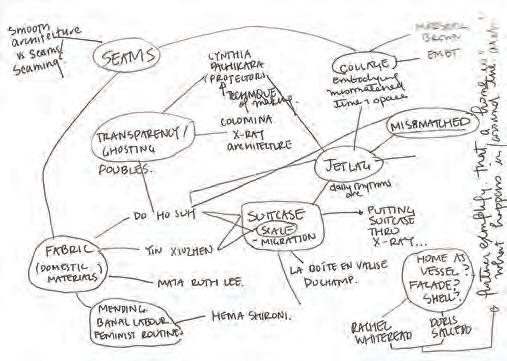 Smooth
architecture
vs seams/
seaming.
SEAMS
CYNTHIA
PROTECTOR
TECHNIQUE
of making.
COLLAGE/
embodying
mismatched
time + space
MARSHALL
BROWN
EMOT
TRANSPARENCY/
GHOSTING
DOUBLES.
COLOMINA
X-RAY
ARCHITECTURE
MISMATCHED
JETLAG
daily rhythms
are
DO HO SUH
SUITCASE
SCALE
- MIGRATION
PUTTING
SUITCASE
THRU
X-RAY...
YIN XIUZHEN
FABRIC
(DOMESTIC
MATERIALS)
MAIA RUTH LEE.
LA BOÎTE EN VALISE
DUCHAMP.
HOME AS
VESSEL?
FACADE?
SHELL?
MENDING.
BANAL LABOUR
FEMINIST ROUTINE
HEMA SHIRONI.
RACHEL
WHITEREAD
DORIS
SALCEDO
further simplify that a home
what happens in/around the